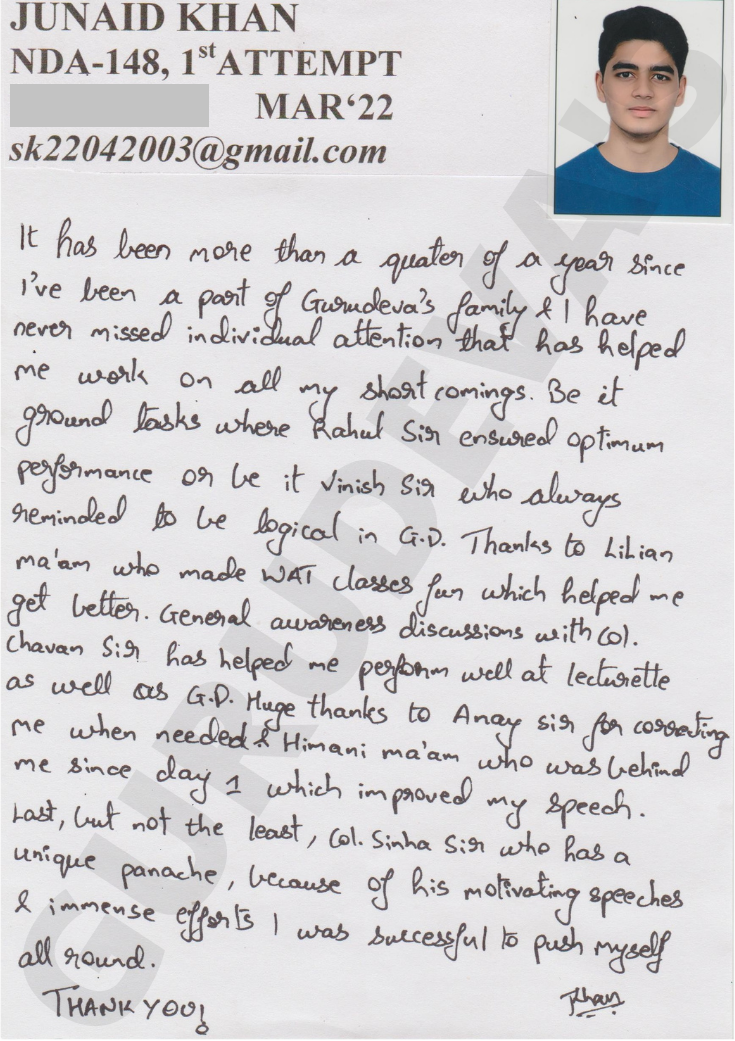 JUNAID KHAN
NDA-148, 1st ATTEMPT
MAR‘22
sk22042003@gmail.com
It has been more than a quater of a year since
I've been a part of Gurudeva's family & I have
never missed individual attention that has helped
me work on all my short comings. Be it
ground tasks where Rahul Sir ensured optimum
performance or be it Vinish Sir who always
reminded to be logical in G.D. Thanks to Lilian
ma'am who made WAT classes fun which helped me
get better. General awareness discussions with Col.
Chavan Sir has helped me perform well at lecturette
as well as G.D. Huge thanks to Anay sir for correcting
me when needed & Himani ma'am who was behind
me since day 1 which improved my speech.
Last, but not the least, Col. Sinha Sir who has a
unique panache, because of his motivating speeches
& immense efforts I was successful to push myself
all round.
THANK YOU!
JKhan
GURUDEVAS